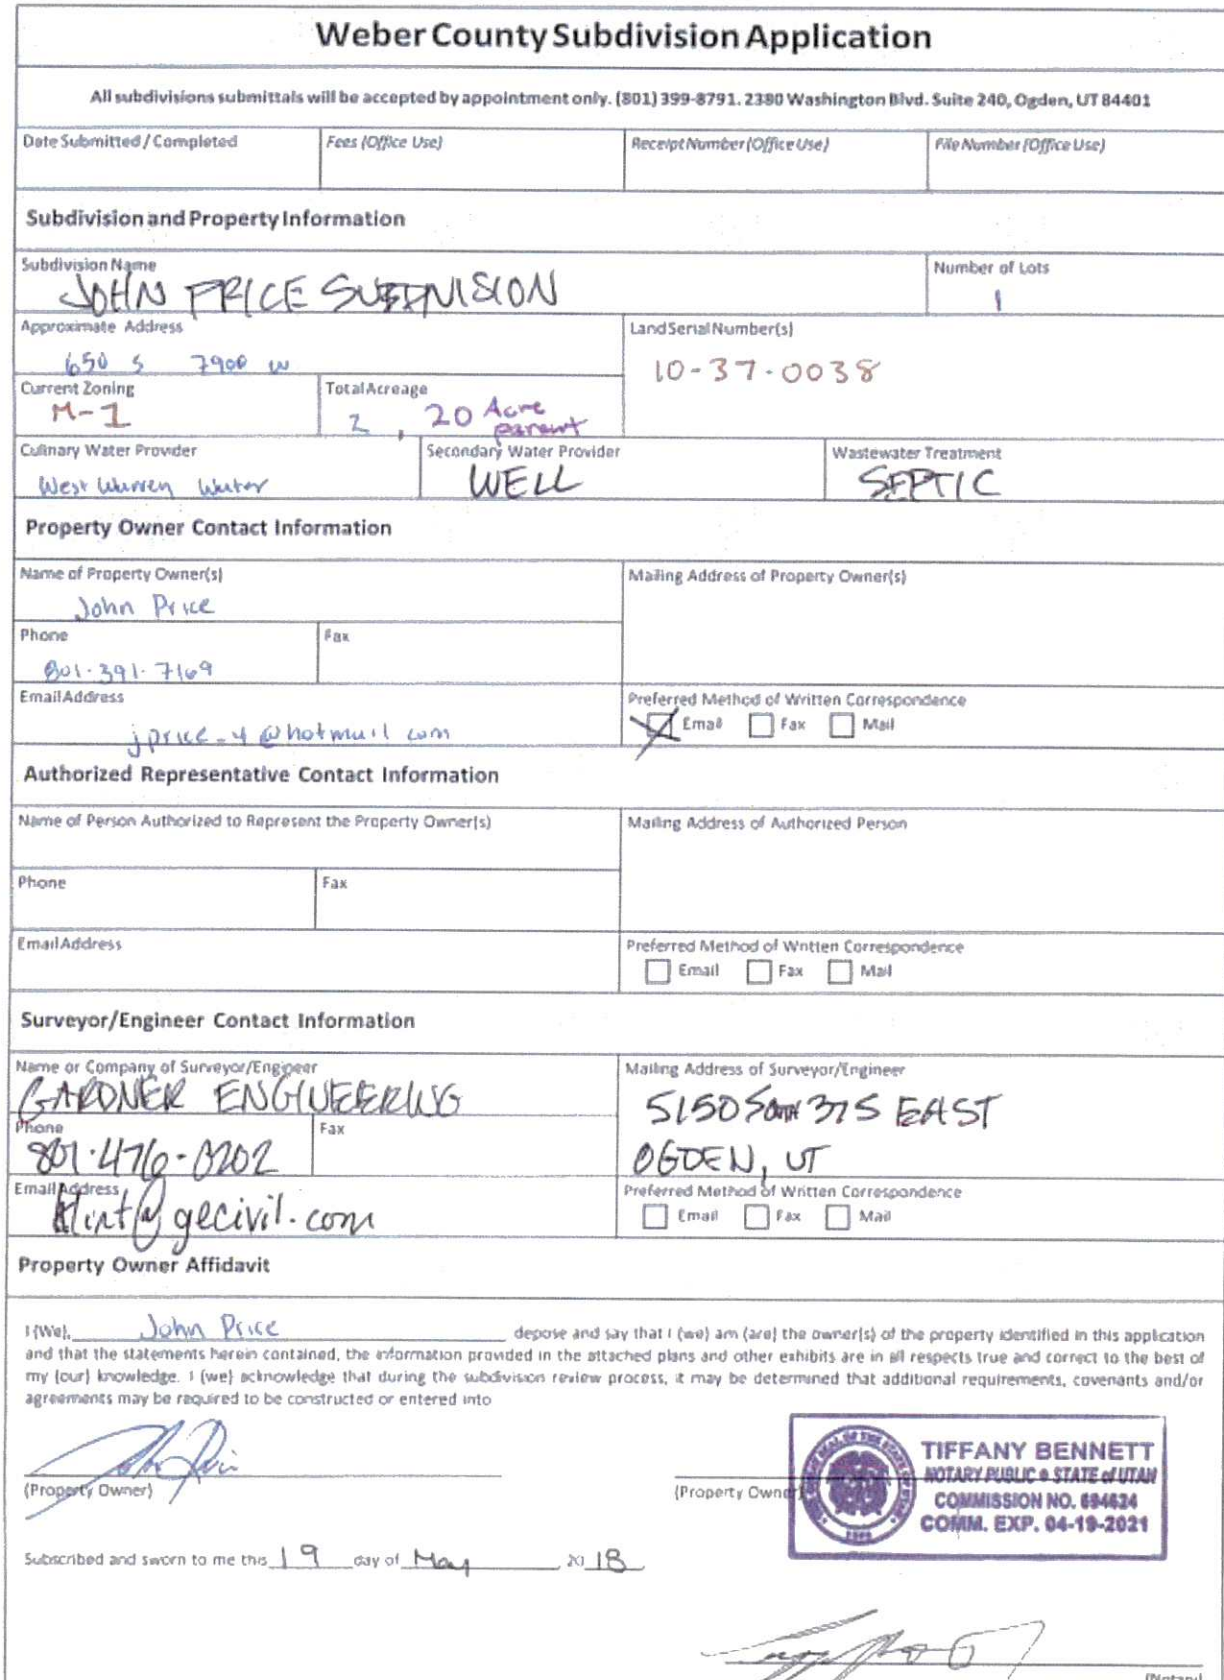 Weber County Subdivision Application
All subdivisions submittals will be accepted by appointment only. (801) 399-8791. 2380 Washington Blvd. Suite 240, Ogden, UT 84401
Date Submitted / Completed
Fees (Office Use)
Receipt Number (Office Use)
File Number (Office Use)
Subdivision and Property Information
Subdivision Name
JOHN PRICE SUBDIVISION
Number of Lots
1
Approximate Address
650 S 7900 W
Land Serial Number(s)
10-37-0038
Current Zoning
M-1
Total Acreage
2, 20 Acre
parent
Culinary Water Provider
West Warren Water
Secondary Water Provider
WELL
Wastewater Treatment
SEPTIC
Property Owner Contact Information
Name of Property Owner(s)
John Price
Mailing Address of Property Owner(s)
Phone
801-391-7169
Fax
Email Address
jprice-4@hotmail com
Preferred Method of Written Correspondence
Email Fax Mail
Authorized Representative Contact Information
Name of Person Authorized to Represent the Property Owner(s)
Mailing Address of Authorized Person
Phone
Fax
Email Address
Preferred Method of Written Correspondence
Email Fax Mail
Surveyor/Engineer Contact Information
Name or Company of Surveyor/Engineer
GARDNER ENGINEERING
Mailing Address of Surveyor/Engineer
5150 SOUTH 375 EAST
OGDEN, UT
Phone
801-476-0202
Fax
Email Address
klint@gecivil.com
Preferred Method of Written Correspondence
Email Fax Mail
Property Owner Affidavit
I (We), John Price depose and say that I (we) am (are) the owner(s) of the property identified in this application
and that the statements herein contained, the information provided in the attached plans and other exhibits are in all respects true and correct to the best of
my (our) knowledge. I (we) acknowledge that during the subdivision review process, it may be determined that additional requirements, covenants and/or
agreements may be required to be constructed or entered into
(Property Owner)
(Property Owner)
TIFFANY BENNETT
NOTARY PUBLIC • STATE of UTAH
COMMISSION NO. 694624
COMM. EXP. 04-19-2021
Subscribed and sworn to me this 19 day of May 20 18
(Notary)